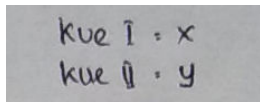 kue I : x
kue II : y